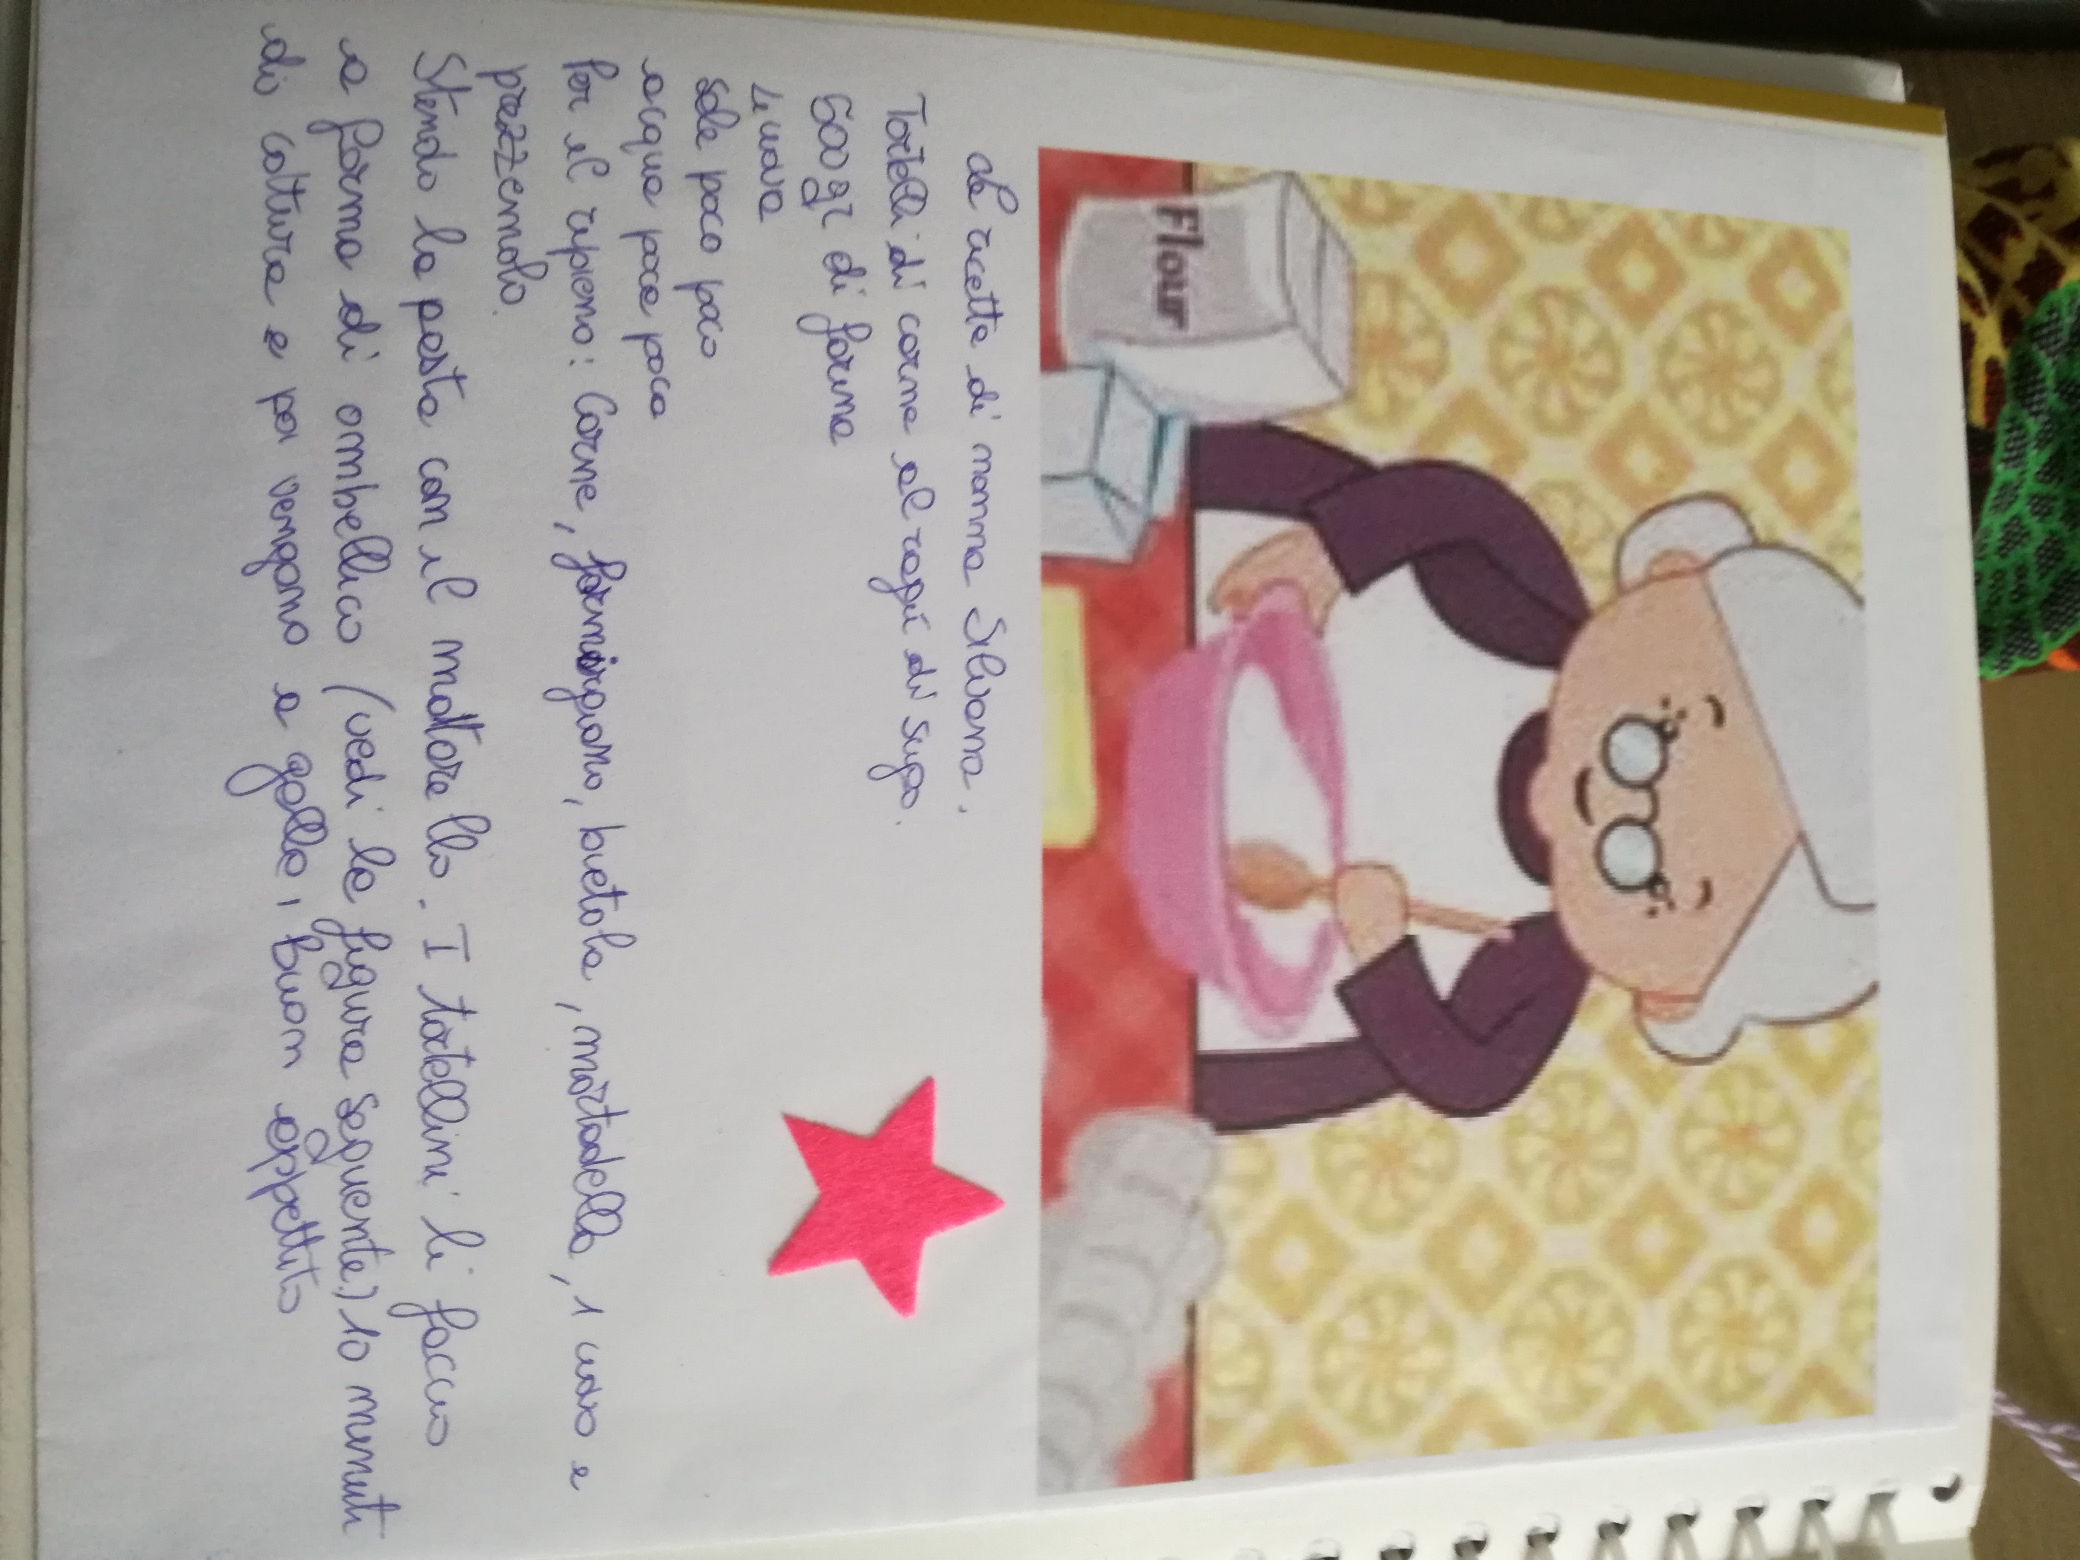 Flour
La ricetta di nonna Silvana.
Tortelli di carne al ragù di sugo.
600 gr di farina
4 uova
sale poco poco
acqua poca poca
Per il ripieno: Carne, formirgiano, bietola, mortadella, 1 uovo e
prezzemolo.
Stendo la pasta con il mattarello. I tortellini li faccio
a forma di ombellico (vedi la figura seguente) 10 minuti
di cottura e poi vengono a galla, buon appetito